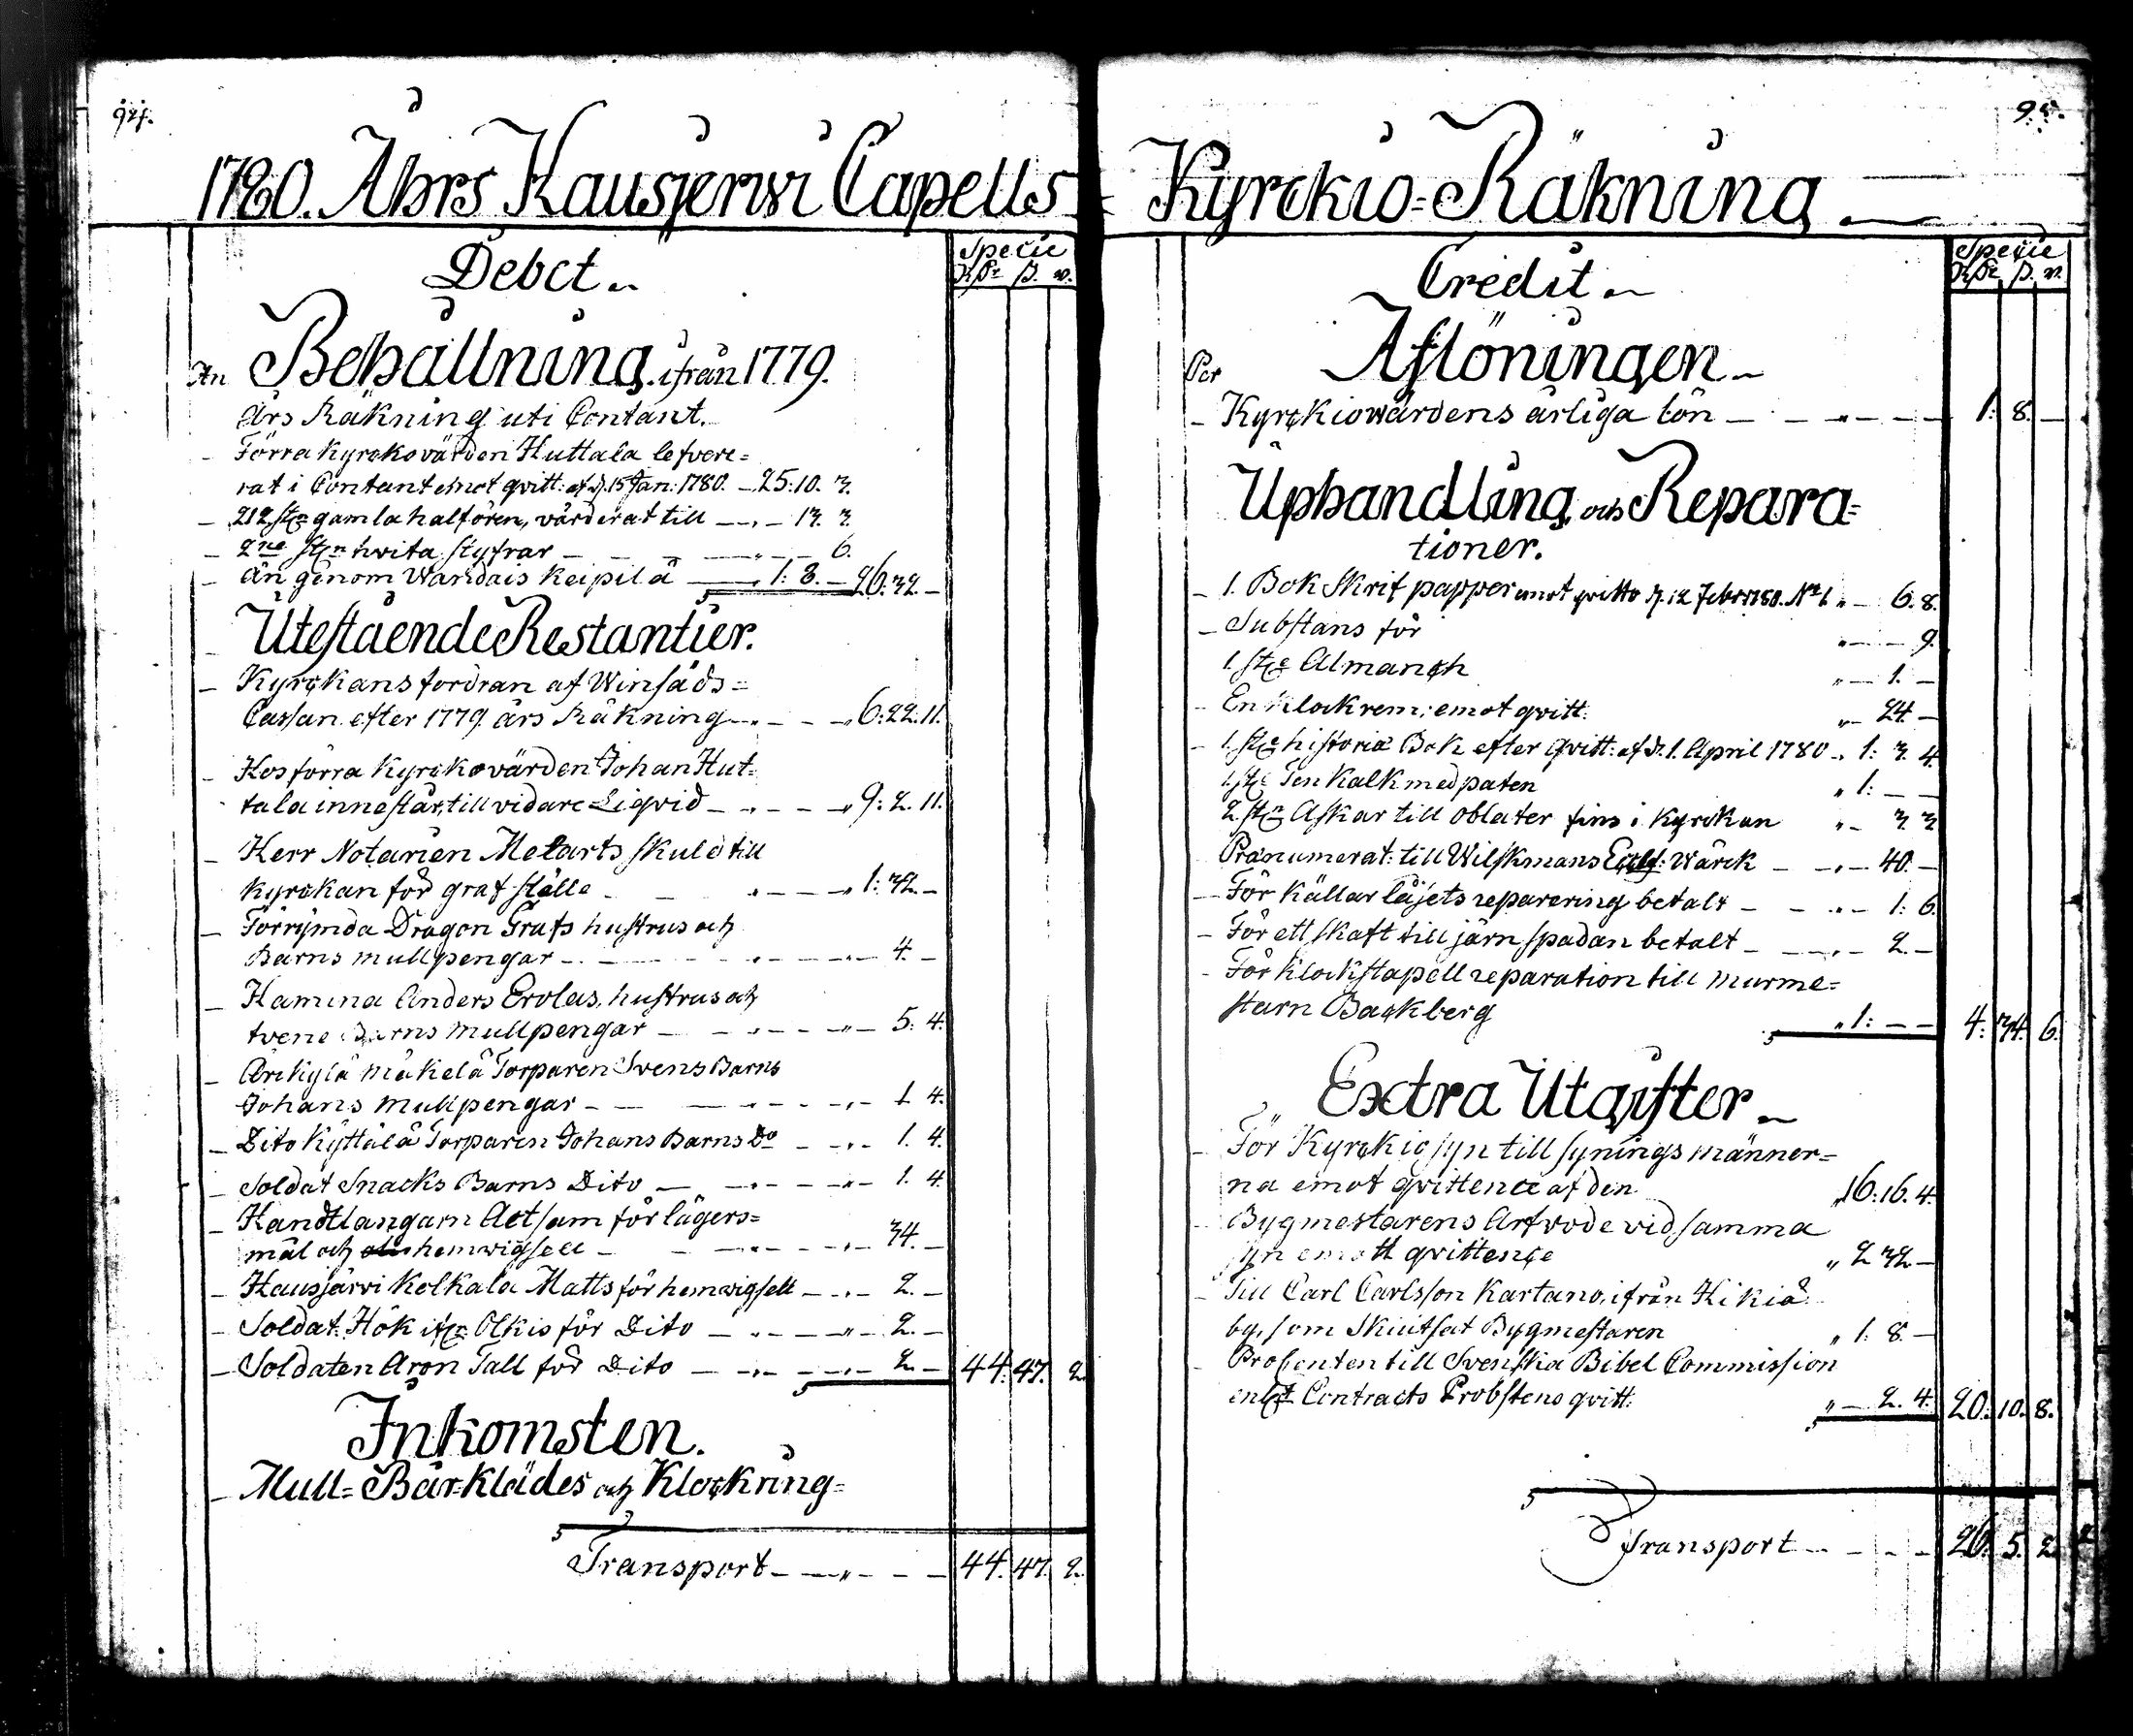 1780. Åhrs Hausjerwi Capells
Debet
Specie
Rdr ß. r.
An Behållning ifrån 1779.
års Räkning uti Contant.
Förra kyrckovärden Huttala lefvere=
rat i Contant emot qvitt: af d. 15 Jan: 1780. 25: 10. 3.
212 st: gamla halfören, värderat till 13. 3.
2ne st: hvita styfrar 6.
än genom Wardais Keipilä 1: 8. 26: 32.
Utestående Restantier.
Kyrckans fordran af Winsäds=
Cassan efter 1779 års Räkning 6: 22: 11.
Hos förra kyrckovärden Johan Hut=
tala innestår, till vidare Liqvid 9: 2. 11.
Herr Notarien Melarts skuld till
kyrckan för graf ställe 1: 32.
Förrymda Dragon Grafs hustrus och
Barns mullpengar 4.
Hamina Anders Erolas, hustrus och
tvene Barns mullpengar 5: 4.
Ärikylä Mäkelä Torparen Svens Barns
Johans Mullpengar 1. 4.
Dito Kyttälä Torparen Johans Barns Do 1. 4.
Soldat Snacks Barns Dito 1. 4.
Handtlangarn Actsam för lägers=
mål och hemwigsell 34.
Hausjärvi Kolkala Matts för hemwigsell 2.
Soldat Hök Olkis för Dito 2.
Soldaten Aron Tall för Dito 2. 44: 47. 2
Inkomsten.
Mull= Bår=klädes och Klockring=
Transport 44. 47. 2.
95.
Kyrckio=Räkning
Credit
Specie
Rdr ß. r.
Per Aflöningen
Kyrckiowärdens årliga lön 1: 8.
Uphandling och Repara=
tioner.
1. Bok Skrifpapper emot qvitto d. 12 Febr 1780. No 1. 6. 8.
Substans för 9.
1 st: Almanch 1.
En klockrem: emot qvitt: 24.
1. st: historia Bok efter qvitt: af d. 1. April 1780 1: 3. 4.
1. st: Ten Kalk med paten 1:
2 st: Askar till oblater fins i kyrckan 3. 3
Pränumerat: till Wilskmans Wärck 40.
För källar läjets reparering betalt 1: 6.
För ett skaft till järnspadan betalt 2.
För klockstapell reparation till murme=
starn Backberg 1: 4: 34. 6.
Extra Utgifter
För Kyrckiosyn till synings männer=
na emot qvittence af den 16: 16. 4.
Bygmestarens Arfwode vid samma
syn emott qvittence 2 32.
Till Carl Carlsson Kartano, ifrån Hikiä
by, som Skiutsat Bygmestaren 1: 8.
Procenten till Svenska Bibel Commission
enligt Contracts Probstens qvitt: 2. 4. 20: 10. 8.
Transport 26. 5. 2.